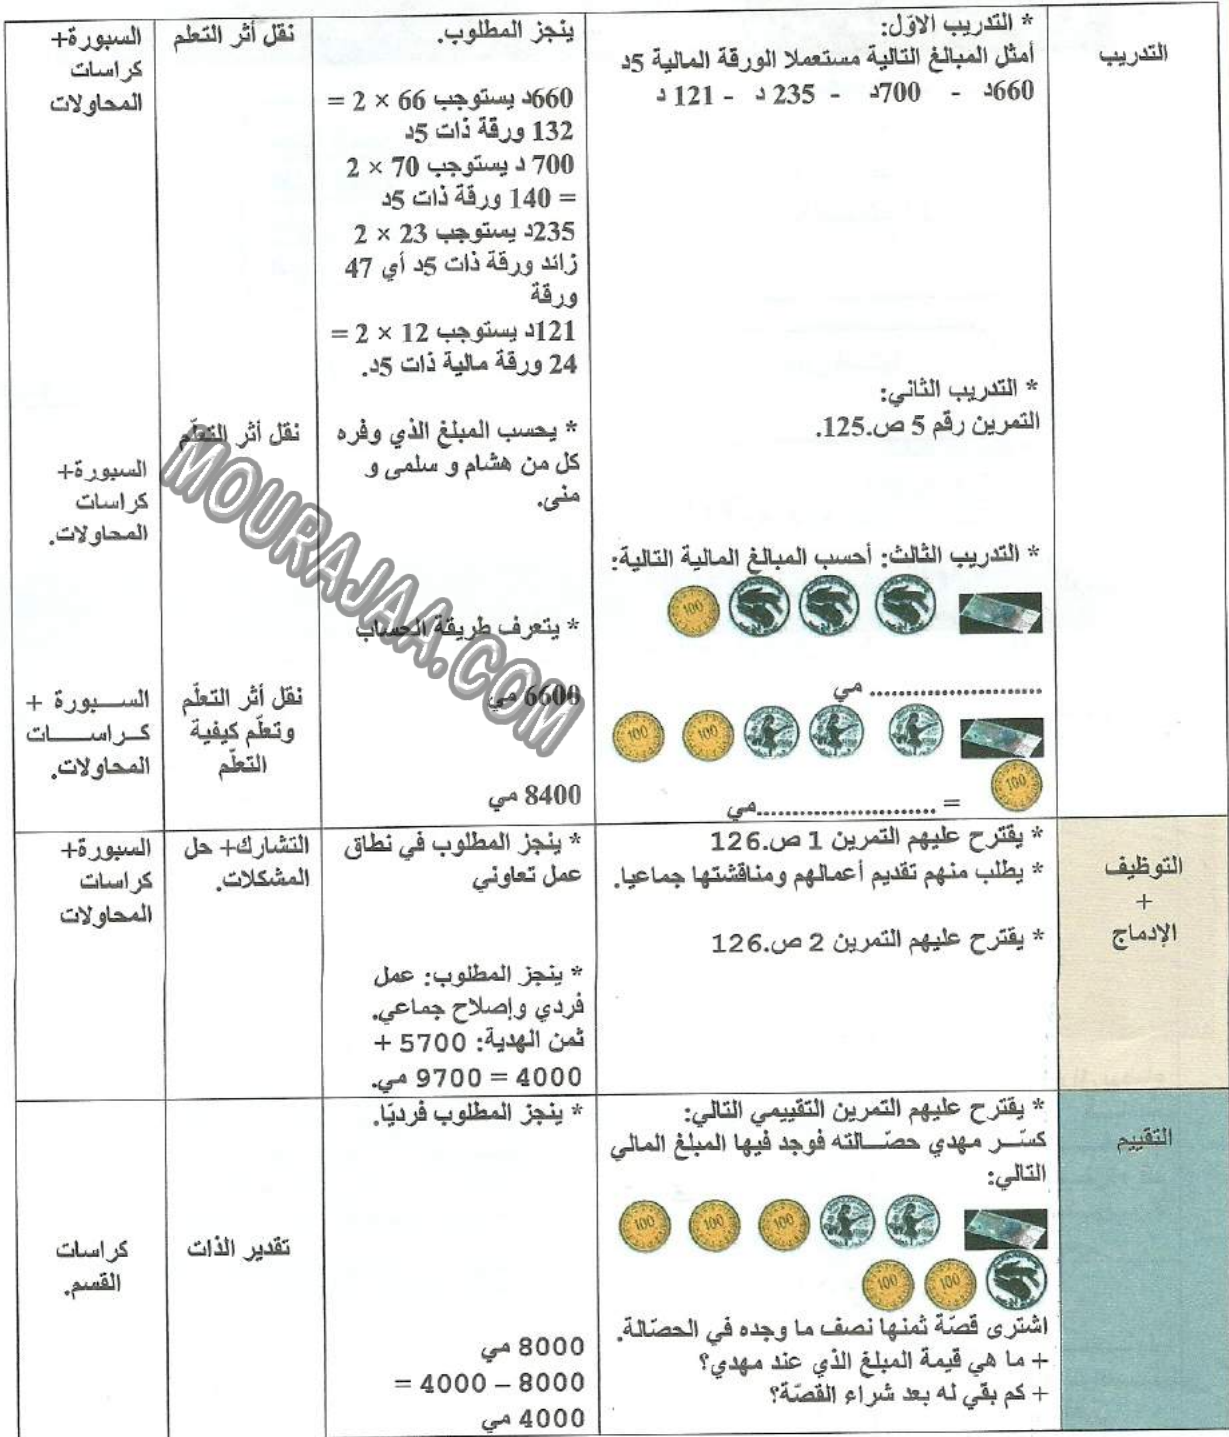 التدريب
* التدريب الاوّل:
أمثل المبالغ التالية مستعملا الورقة المالية 5د
660د - 700د - 235 د - 121 د
* التدريب الثاني:
التمرين رقم 5 ص.125.
* التدريب الثالث: أحسب المبالغ المالية التالية:
100
........................ مي
100 100
100
= ........................مي
ينجز المطلوب.
660د يستوجب 66 × 2 =
132 ورقة ذات 5د
700 د يستوجب 70 × 2
= 140 ورقة ذات 5د
235د يستوجب 23 × 2
زائد ورقة ذات 5د أي 47
ورقة
121د يستوجب 12 × 2 =
24 ورقة مالية ذات 5د.
* يحسب المبلغ الذي وفره
كل من هشام و سلمى و
منى.
* يتعرف طريقة الحساب
6600 مي
8400 مي
نقل أثر التعلم
نقل أثر التعلّم
نقل أثر التعلّم
وتعلّم كيفية
التعلّم
السبورة+
كراسات
المحاولات
السبورة+
كراسات
المحاولات.
الســـبورة +
كـراســـــات
المحاولات.
MOURAJAA.COM
التوظيف
+
الإدماج
* يقترح عليهم التمرين 1 ص.126
* يطلب منهم تقديم أعمالهم ومناقشتها جماعيا.
* يقترح عليهم التمرين 2 ص.126
* ينجز المطلوب في نطاق
عمل تعاوني
* ينجز المطلوب: عمل
فردي وإصلاح جماعي.
ثمن الهدية: 5700 +
4000 = 9700 مي.
التشارك+ حل
المشكلات.
السبورة+
كراسات
المحاولات
التقييم
* يقترح عليهم التمرين التقييمي التالي:
كسّـــر مهدي حصّـــالته فوجد فيها المبلغ المالي
التالي:
100 100 100
100 100
اشترى قصّة ثمنها نصف ما وجده في الحصّالة.
+ ما هي قيمة المبلغ الذي عند مهدي؟
+ كم بقي له بعد شراء القصّة؟
* ينجز المطلوب فرديّا.
8000 مي
8000 – 4000 =
4000 مي
تقدير الذات
كراسات
القسم.